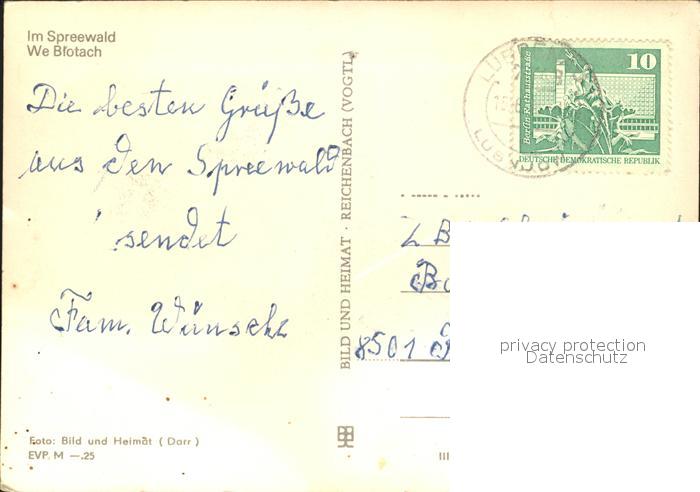 Im Spreewald
We Błotach
Die besten Grüße
aus den Spreewald
sendet
Fam. Wünsche
Foto: Bild und Heimat (Darr)
EVP. M —.25
BILD UND HEIMAT · REICHENBACH (VOGTL)
III
LÜBBEN
LUBIN
10
Berlin·Rathausstraße
DEUTSCHE DEMOKRATISCHE REPUBLIK
8501
privacy protection
Datenschutz